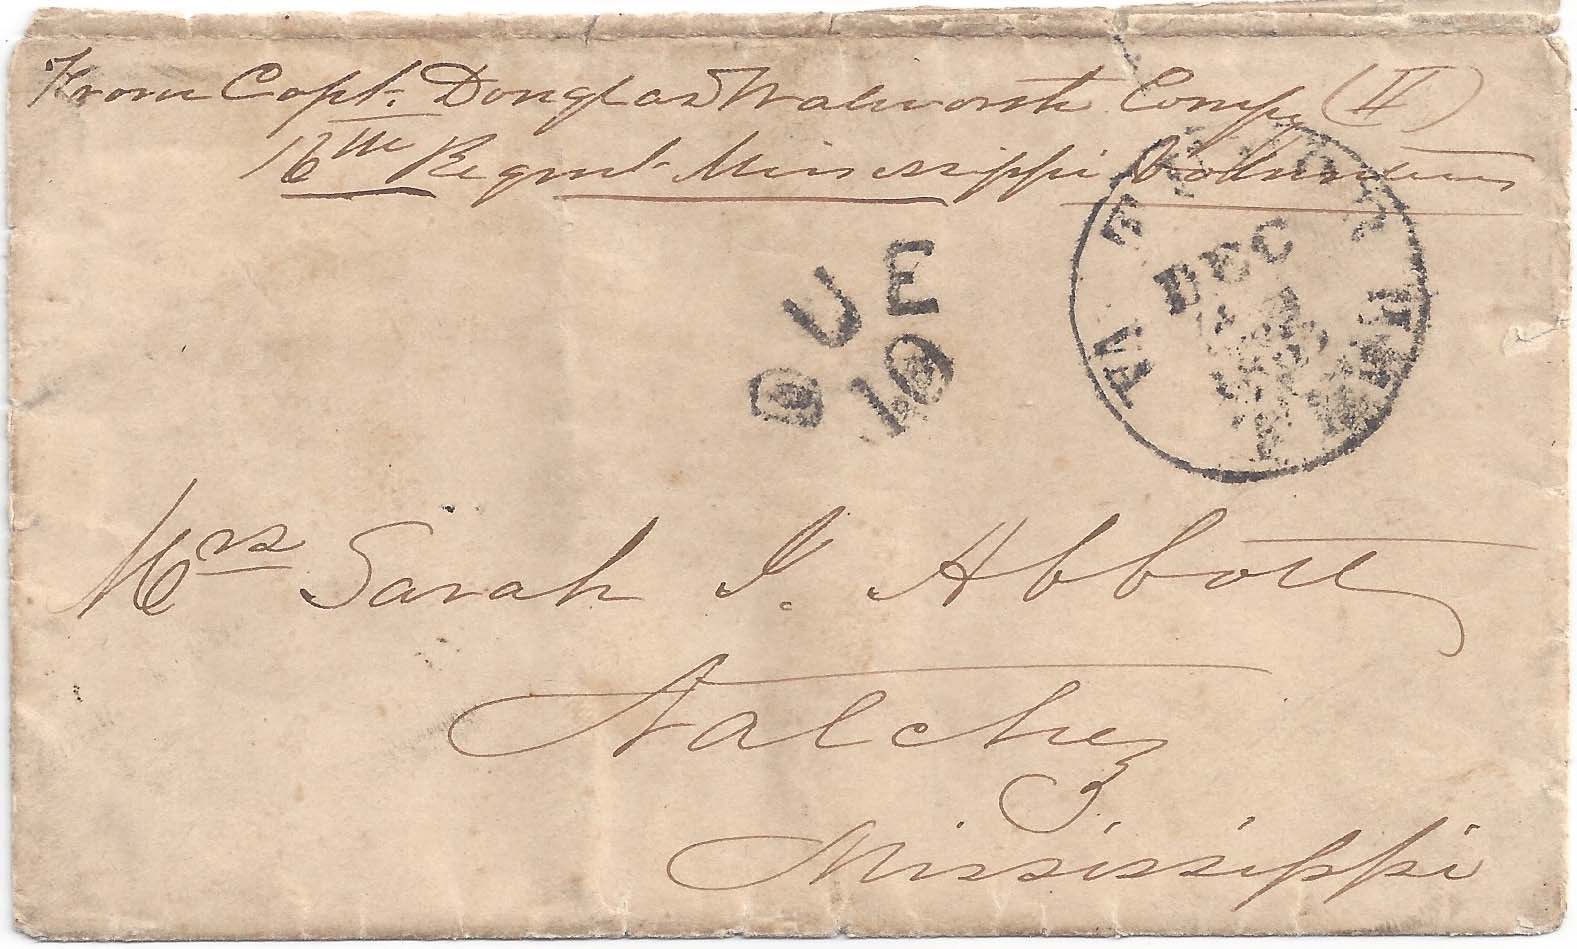 From Capt. Douglas Walworth Compy (II)
16th Regmt. Mississippi Volunteers
DUE
10
DEC
VA
Mrs Sarah I. Abbott
Natchez
Mississippi